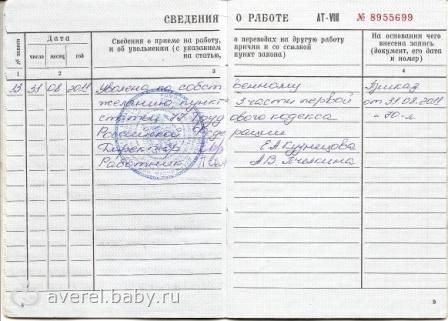 СВЕДЕНИЯ О РАБОТЕ АТ-VIII № 8955699
№ записи
Дата
число месяц год
Сведения о приеме на работу, о переводах на другую работу
и об увольнении (с указанием причин и со ссылкой
на статью, пункт закона)
На основании чего
внесена запись
(документ, его дата
и номер)
1 2 3 4
13 31 08 2011 Уволена по собственному Приказ
желанию, пункт 3 части первой от 31.08.2011
статьи 77 Трудового кодекса
Российской Федерации
Директор Е.А Кузнецова
Работник А.В
9
averel.baby.ru